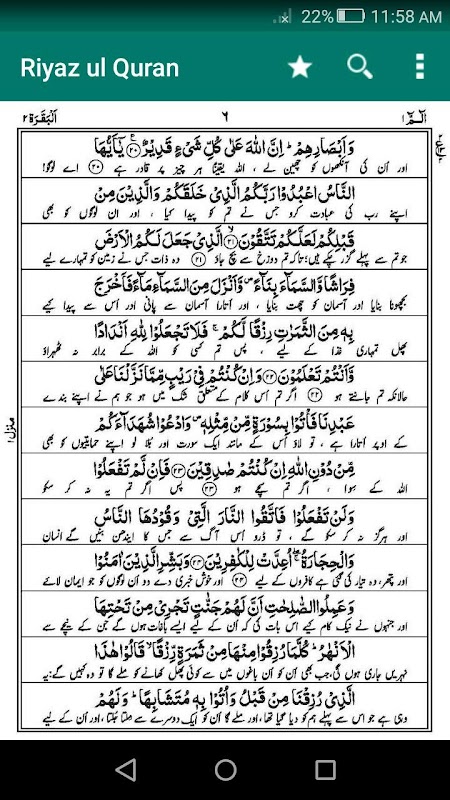 22% 11:58 AM
Riyaz ul Quran
الٓمّٓ ١ ٦ اَلْبَقَرَة ٢
وَاَبْصَارِهِمْ ؕ اِنَّ اللّٰهَ عَلٰى كُلِّ شَىْءٍ قَدِيْرٌ ۝٢٠ يٰٓاَيُّهَا
اور ان کی آنکھوں کو چھین لے ، اللہ یقینًا ہر چیز پر قادر ہے ۲۰ اے لوگو!
النَّاسُ اعْبُدُوْا رَبَّكُمُ الَّذِىْ خَلَقَكُمْ وَالَّذِيْنَ مِنْ
اپنے رب کی عبادت کرو جس نے تم کو پیدا کیا ، اور ان لوگوں کو بھی
قَبْلِكُمْ لَعَلَّكُمْ تَتَّقُوْنَ ۝٢١ الَّذِىْ جَعَلَ لَكُمُ الْاَرْضَ
جو تم سے پہلے گزر چکے ہیں؛ تاکہ تم دوزخ سے بچ جاؤ ۲۱ وہ ذات جس نے زمین کو تمہارے لیے
فِرَاشًا وَّالسَّمَآءَ بِنَآءً ۪ وَّاَنْزَلَ مِنَ السَّمَآءِ مَآءً فَاَخْرَجَ
بچھونا بنایا اور آسمان کو چھت بنایا ، اور اتارا آسمان سے پانی اور اس سے پیدا کیے
بِهٖ مِنَ الثَّمَرٰتِ رِزْقًا لَّكُمْ ۚ فَلَا تَجْعَلُوْا لِلّٰهِ اَنْدَادًا
پھل تمہاری غذا کے لیے ، پس تم کسی کو اللہ کے برابر نہ ٹھہراؤ
وَّاَنْتُمْ تَعْلَمُوْنَ ۝٢٢ وَاِنْ كُنْتُمْ فِىْ رَيْبٍ مِّمَّا نَزَّلْنَا عَلٰى
حالانکہ تم جانتے ہو ۲۲ اگر تم اس کلام کے متعلق شک میں ہو جو ہم نے اپنے بندے
عَبْدِنَا فَاْتُوْا بِسُوْرَةٍ مِّنْ مِّثْلِهٖ ۪ وَادْعُوْا شُهَدَآءَكُمْ
کے اوپر اتارا ہے ، تو لاؤ اس کے مانند ایک سورت اور بلا لو اپنے حمایتیوں کو بھی
مِّنْ دُوْنِ اللّٰهِ اِنْ كُنْتُمْ صٰدِقِيْنَ ۝٢٣ فَاِنْ لَّمْ تَفْعَلُوْا
اللہ کے سوا ، اگر تم سچے ہو ۲۳ پس اگر تم یہ نہ کر سکو
وَلَنْ تَفْعَلُوْا فَاتَّقُوا النَّارَ الَّتِىْ وَقُوْدُهَا النَّاسُ
اور ہرگز نہ کر سکو گے ، تو ڈرو اس آگ سے جس کا ایندھن بنیں گے انسان
وَالْحِجَارَةُ ۖۚ اُعِدَّتْ لِلْكٰفِرِيْنَ ۝٢٤ وَبَشِّرِ الَّذِيْنَ اٰمَنُوْا
اور پتھر، وہ تیار کی گئی ہے کافروں کے لیے ۲۴ اور خوش خبری دے دو ان لوگوں کو جو ایمان لائے
وَعَمِلُوا الصّٰلِحٰتِ اَنَّ لَهُمْ جَنّٰتٍ تَجْرِىْ مِنْ تَحْتِهَا
اور جنہوں نے نیک کام کیے اس بات کی کہ ان کے لیے ایسے باغات ہوں گے جن کے نیچے سے
الْاَنْهٰرُ ؕ كُلَّمَا رُزِقُوْا مِنْهَا مِنْ ثَمَرَةٍ رِّزْقًا ۙ قَالُوْا هٰذَا
نہریں جاری ہوں گی، جب بھی ان کو ان باغوں میں سے کوئی پھل کھانے کو ملے گا تو وہ کہیں گے: یہ
الَّذِىْ رُزِقْنَا مِنْ قَبْلُ وَاُتُوْا بِهٖ مُتَشَابِهًا ؕ وَلَهُمْ
وہی ہے جو اس سے پہلے ہم کو دیا گیا تھا، اور ملے گا ان کو ایک دوسرے سے ملتا جلتا، اور ان کے لیے
منزل ۱